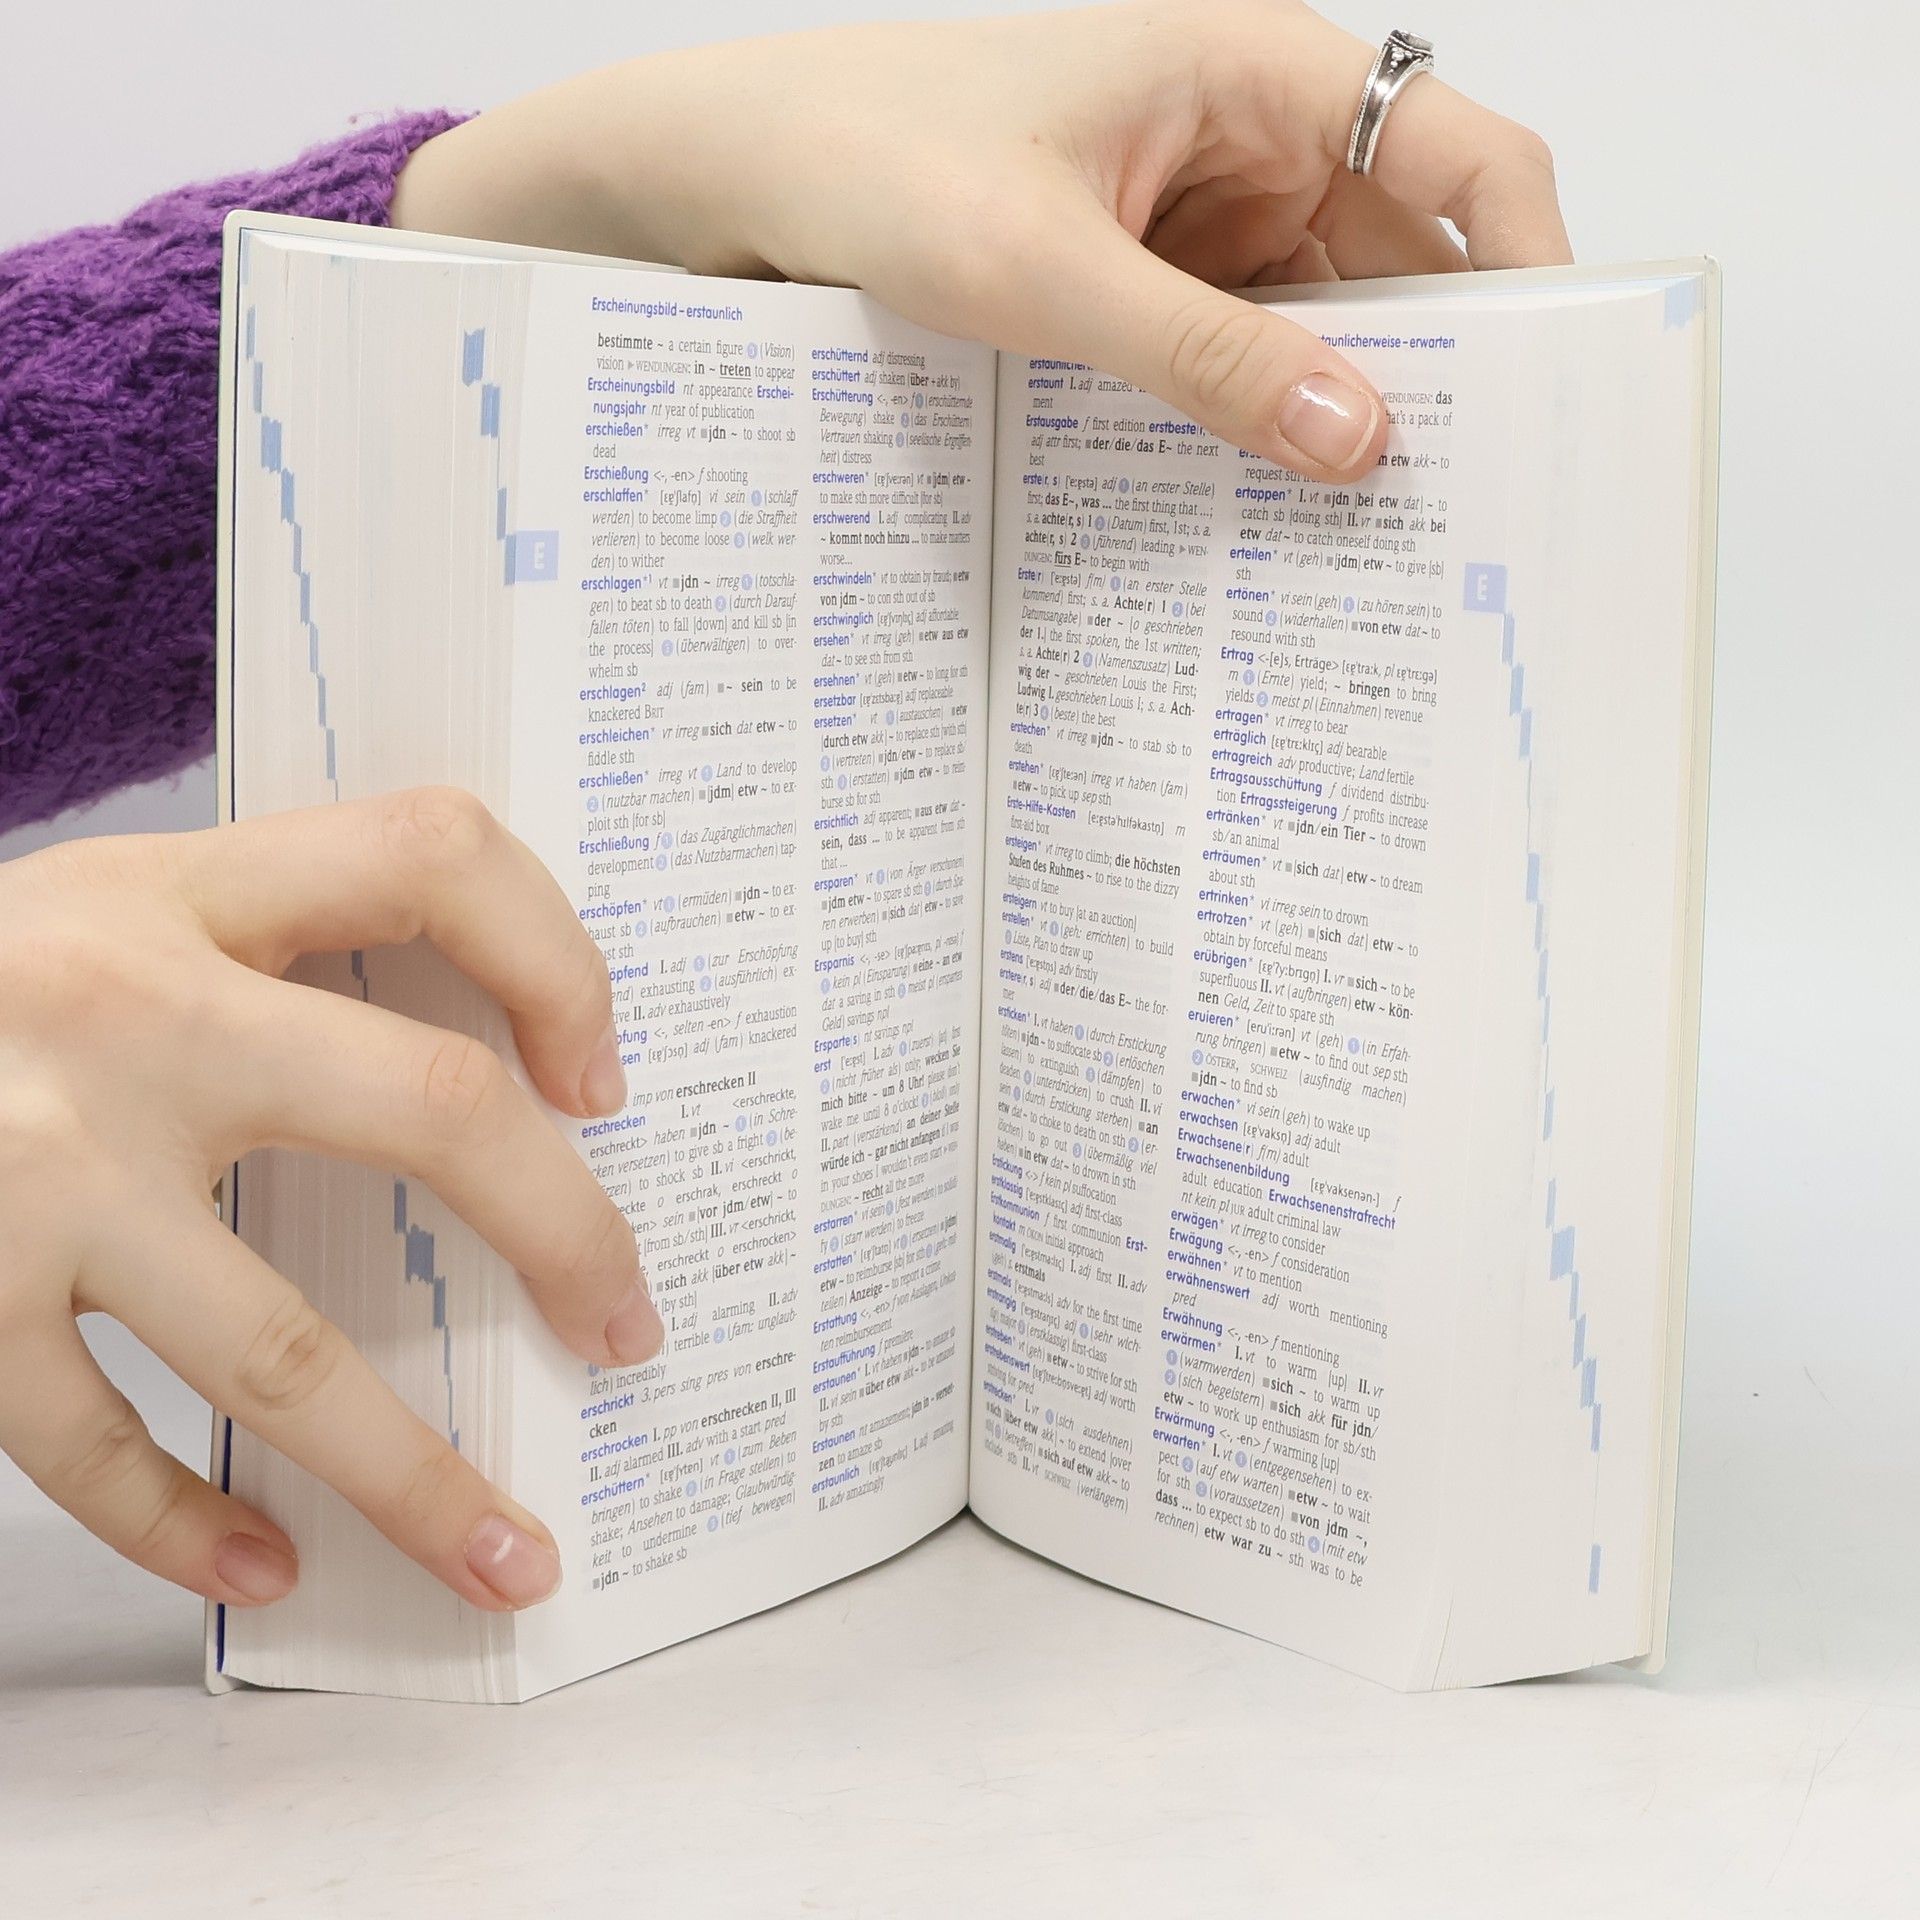 Erscheinungsbild – erstaunlich
bestimmte ~ a certain figure 3 (Vision)
vision ▶ WENDUNGEN: in ~ treten to appear
Erscheinungsbild nt appearance Erschei-
nungsjahr nt year of publication
erschießen* irreg vt ■jdn ~ to shoot sb
dead
Erschießung <-, -en> f shooting
erschlaffen* [ɛɐ̯ˈʃlafn̩] vi sein 1 (schlaff
werden) to become limp 2 (die Straffheit
verlieren) to become loose 3 (welk wer-
den) to wither
erschlagen*¹ vt ■jdn ~ irreg 1 (totschla-
gen) to beat sb to death 2 (durch Darauf-
fallen töten) to fall [down] and kill sb [in
the process] 3 (überwältigen) to over-
whelm sb
erschlagen² adj (fam) ■~ sein to be
knackered BRIT
erschleichen* vr irreg ■sich dat etw ~ to
fiddle sth
erschließen* irreg vt 1 Land to develop
2 (nutzbar machen) ■[jdm] etw ~ to ex-
ploit sth [for sb]
Erschließung f 1 (das Zugänglichmachen)
development 2 (das Nutzbarmachen) tap-
ping
erschöpfen* vt 1 (ermüden) ■jdn ~ to ex-
haust sb 2 (aufbrauchen) ■etw ~ to ex-
ust sth
öpfend I. adj 1 (zur Erschöpfung
end) exhausting 2 (ausführlich) ex-
ive II. adv exhaustively
pfung <-, selten -en> f exhaustion
sen [ɛɐ̯ˈʃɔsn̩] adj (fam) knackered
imp von erschrecken II
erschrecken I. vt <erschreckte,
erschreckt> haben ■jdn ~ 1 (in Schre-
cken versetzen) to give sb a fright 2 (be-
rzen) to shock sb II. vi <erschrickt,
eckte o erschrak, erschreckt o
ken> sein ■[vor jdm/etw] ~ to
[from sb/sth] III. vr <erschrickt,
erschreckt o erschrocken>
■sich akk [über etw akk] ~
[by sth]
I. adj alarming II. adv
terrible 2 (fam: unglaub-
lich) incredibly
erschrickt 3. pers sing pres von erschre-
cken
erschrocken I. pp von erschrecken II, III
II. adj alarmed III. adv with a start pred
erschüttern* [ɛɐ̯ˈʃʏtɐn] vt 1 (zum Beben
bringen) to shake 2 (in Frage stellen) to
shake; Ansehen to damage; Glaubwürdig-
keit to undermine 3 (tief bewegen)
■jdn ~ to shake sb
erschütternd adj distressing
erschüttert adj shaken (über +akk by)
Erschütterung <-, -en> f 1 (erschütternde
Bewegung) shake 2 (das Erschüttern)
Vertrauen shaking 3 (seelische Ergriffen-
heit) distress
erschweren* [ɛɐ̯ˈʃveːrən] vt ■[jdm] etw ~
to make sth more difficult [for sb]
erschwerend I. adj complicating II. adv
~ kommt noch hinzu ... to make matters
worse...
erschwindeln* vt to obtain by fraud; ■etw
von jdm ~ to con sth out of sb
erschwinglich [ɛɐ̯ˈʃvɪŋlɪç] adj affordable
ersehen* vt irreg (geh) ■etw aus etw
dat ~ to see sth from sth
ersehnen* vt (geh) ■etw ~ to long for sth
ersetzbar [ɛɐ̯ˈzɛtsbaːɐ̯] adj replaceable
ersetzen* vt 1 (austauschen) ■etw
[durch etw akk] ~ to replace sth [with sth]
2 (vertreten) ■jdn/etw ~ to replace sb/
sth 3 (erstatten) ■jdm etw ~ to reim-
burse sb for sth
ersichtlich adj apparent; ■aus etw dat ~
sein, dass ... to be apparent from sth
that ...
ersparen* vt 1 (von Ärger verschonen)
■jdm etw ~ to spare sb sth 2 (durch Spa-
ren erwerben) ■[sich dat] etw ~ to save
up [to buy] sth
Ersparnis <-, -se> f
1 kein pl (Einsparung) ■eine ~ an etw
dat a saving in sth 2 meist pl (erspartes
Geld) savings npl
Erspartes nt savings npl
erst [ˈeːɐ̯st] I. adv 1 (zuerst) [at] first
2 (nicht früher als) only; wecken Sie
mich bitte ~ um 8 Uhr! please don't
wake me until 8 o'clock! 3 (bloß) only
II. part (verstärkend) an deiner Stelle
würde ich ~ gar nicht anfangen if I was
in your shoes I wouldn't even start ▶ WEN-
DUNGEN: ~ recht all the more
erstarren* vi sein 1 (fest werden) to solidi-
fy 2 (starr werden) to freeze
erstatten* [ɛɐ̯ˈʃtatn̩] vt 1 (ersetzen) ■[jdm]
etw ~ to reimburse [sb] for sth 2 (geh: mit-
teilen) Anzeige ~ to report a crime
Erstattung <-, -en> f von Auslagen, Unkos-
ten reimbursement
Erstaufführung f premiere
erstaunen* I. vt haben ■jdn ~ to amaze sb
II. vi sein ■über etw akk ~ to be amazed
by sth
Erstaunen nt amazement; jdn in ~ verset-
zen to amaze sb
erstaunlich [ɛɐ̯ˈʃtaunlɪç] I. adj amazing
II. adv amazingly
E
taunlicherweise – erwarten
erstaunt I. adj amazed
ment
Erstausgabe f first edition erstbeste(r,
adj attr first; ■der/die/das E~ the next
best
erste(r, s) [ˈeːɐ̯stə] adj 1 (an erster Stelle)
first; das E~, was ... the first thing that ...;
s. a. achte(r, s) 1 2 (Datum) first, 1st; s. a.
achte(r, s) 2 3 (führend) leading ▶ WEN-
DUNGEN: fürs E~ to begin with
Erste(r) [ˈeːɐ̯stə] f(m) 1 (an erster Stelle
kommend) first; s. a. Achte(r) 1 2 (bei
Datumsangabe) ■der ~ [o geschrieben
der 1.] the first spoken, the 1st written;
s. a. Achte(r) 2 3 (Namenszusatz) Lud-
wig der ~ geschrieben Louis the First;
Ludwig I. geschrieben Louis I; s. a. Ach-
te(r) 3 4 (beste) the best
erstechen* vt irreg ■jdn ~ to stab sb to
death
erstehen* [ɛɐ̯ˈʃteːən] irreg vt haben (fam)
■etw ~ to pick up sep sth
Erste-Hilfe-Kasten [eːɐ̯stəˈhɪlfəkastn̩] m
first-aid box
ersteigen* vt irreg to climb; die höchsten
Stufen des Ruhmes ~ to rise to the dizzy
heights of fame
ersteigern vt to buy [at an auction]
erstellen* vt 1 (geh: errichten) to build
2 Liste, Plan to draw up
erstens [ˈeːɐ̯stn̩s] adv firstly
erstere(r, s) adj ■der/die/das E~ the for-
mer
ersticken* I. vt haben 1 (durch Erstickung
töten) ■jdn ~ to suffocate sb 2 (erlöschen
lassen) to extinguish 3 (dämpfen) to
deaden 4 (unterdrücken) to crush II. vi
sein 1 (durch Erstickung sterben) ■an
etw dat ~ to choke to death on sth 2 (er-
löschen) to go out 3 (übermäßig viel
haben) ■in etw dat ~ to drown in sth
Erstickung <-> f kein pl suffocation
erstklassig [ˈeːɐ̯stklasɪç] adj first-class
Erstkommunion f first communion Erst-
kontakt m ÖKON initial approach
erstmalig [ˈeːɐ̯stmaːlɪç] I. adj first II. adv
(geh) s. erstmals
erstmals [ˈeːɐ̯stmaːls] adv for the first time
erstrangig [ˈeːɐ̯straŋɪç] adj 1 (sehr wich-
tig) major 2 (erstklassig) first-class
erstreben* vt (geh) ■etw ~ to strive for sth
erstrebenswert [ɛɐ̯ˈʃtreːbn̩sveːɐ̯t] adj worth
striving for pred
erstrecken* I. vr 1 (sich ausdehnen)
■sich [über etw akk] ~ to extend [over
sth] 2 (betreffen) ■sich auf etw akk ~ to
include sth II. vt SCHWEIZ (verlängern)
WENDUNGEN: das
hat's a pack of
m etw akk ~ to
request sth
ertappen* I. vt ■jdn [bei etw dat] ~ to
catch sb [doing sth] II. vr ■sich akk bei
etw dat ~ to catch oneself doing sth
erteilen* vt (geh) ■[jdm] etw ~ to give [sb]
sth
ertönen* vi sein (geh) 1 (zu hören sein) to
sound 2 (widerhallen) ■von etw dat ~ to
resound with sth
Ertrag <-[e]s, Erträge> [ɛɐ̯ˈtraːk, pl ɛɐ̯ˈtrɛːgə]
m 1 (Ernte) yield; ~ bringen to bring
yields 2 meist pl (Einnahmen) revenue
ertragen* vt irreg to bear
erträglich [ɛɐ̯ˈtrɛːklɪç] adj bearable
ertragreich adv productive; Land fertile
Ertragsausschüttung f dividend distribu-
tion Ertragssteigerung f profits increase
ertränken* vt ■jdn/ein Tier ~ to drown
sb/an animal
erträumen* vt ■[sich dat] etw ~ to dream
about sth
ertrinken* vi irreg sein to drown
ertrotzen* vt (geh) ■[sich dat] etw ~ to
obtain by forceful means
erübrigen* [ɛɐ̯ˈʔyːbrɪgn̩] I. vr ■sich ~ to be
superfluous II. vt (aufbringen) etw ~ kön-
nen Geld, Zeit to spare sth
eruieren* [eruˈiːrən] vt (geh) 1 (in Erfah-
rung bringen) ■etw ~ to find out sep sth
2 ÖSTERR, SCHWEIZ (ausfindig machen)
■jdn ~ to find sb
erwachen* vi sein (geh) to wake up
erwachsen [ɛɐ̯ˈvaksn̩] adj adult
Erwachsene(r) f(m) adult
Erwachsenenbildung [ɛɐ̯ˈvaksənən-] f
adult education Erwachsenenstrafrecht
nt kein pl JUR adult criminal law
erwägen* vt irreg to consider
Erwägung <-, -en> f consideration
erwähnen* vt to mention
erwähnenswert adj worth mentioning
pred
Erwähnung <-, -en> f mentioning
erwärmen* I. vt to warm [up] II. vr
1 (warmwerden) ■sich ~ to warm up
2 (sich begeistern) ■sich akk für jdn/
etw ~ to work up enthusiasm for sb/sth
Erwärmung <-, -en> f warming [up]
erwarten* I. vt 1 (entgegensehen) to ex-
pect 2 (auf etw warten) ■etw ~ to wait
for sth 3 (voraussetzen) ■von jdm ~,
dass ... to expect sb to do sth 4 (mit etw
rechnen) etw war zu ~ sth was to be
E